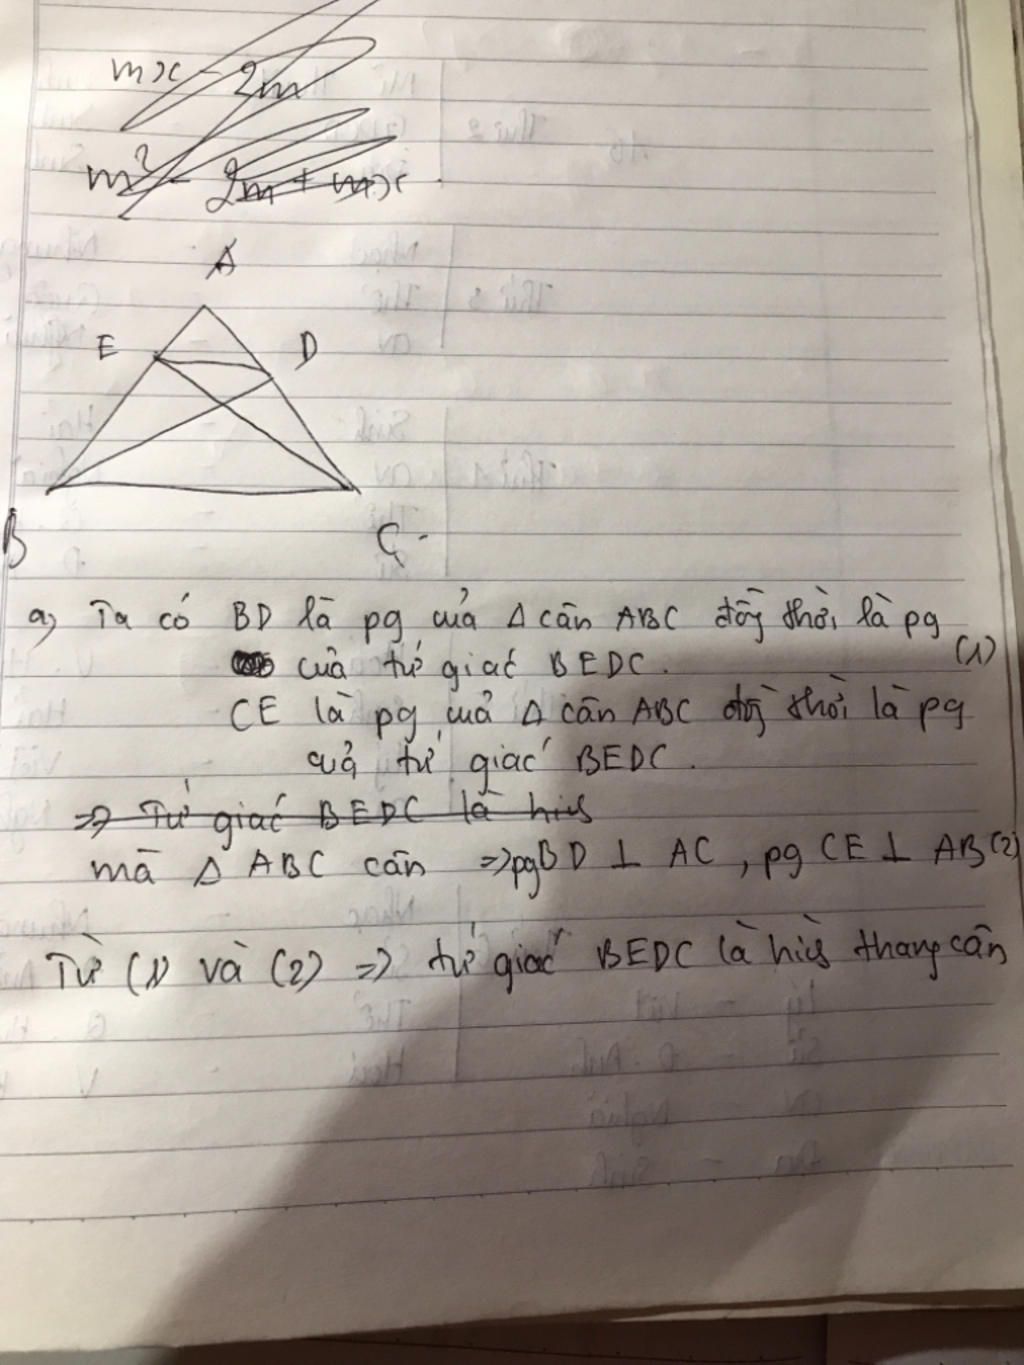 mx - 2m
m² - 2m + mx
A
E D
B C
a) Ta có BD là pg của Δ cân ABC đồng thời là pg
của tứ giác BEDC. (1)
CE là pg của Δ cân ABC đồng thời là pg
của tứ giác BEDC.
=> Tứ giác BEDC là hình
mà Δ ABC cân => pg BD ⊥ AC, pg CE ⊥ AB (2)
Từ (1) và (2) => tứ giác BEDC là hình thang cân